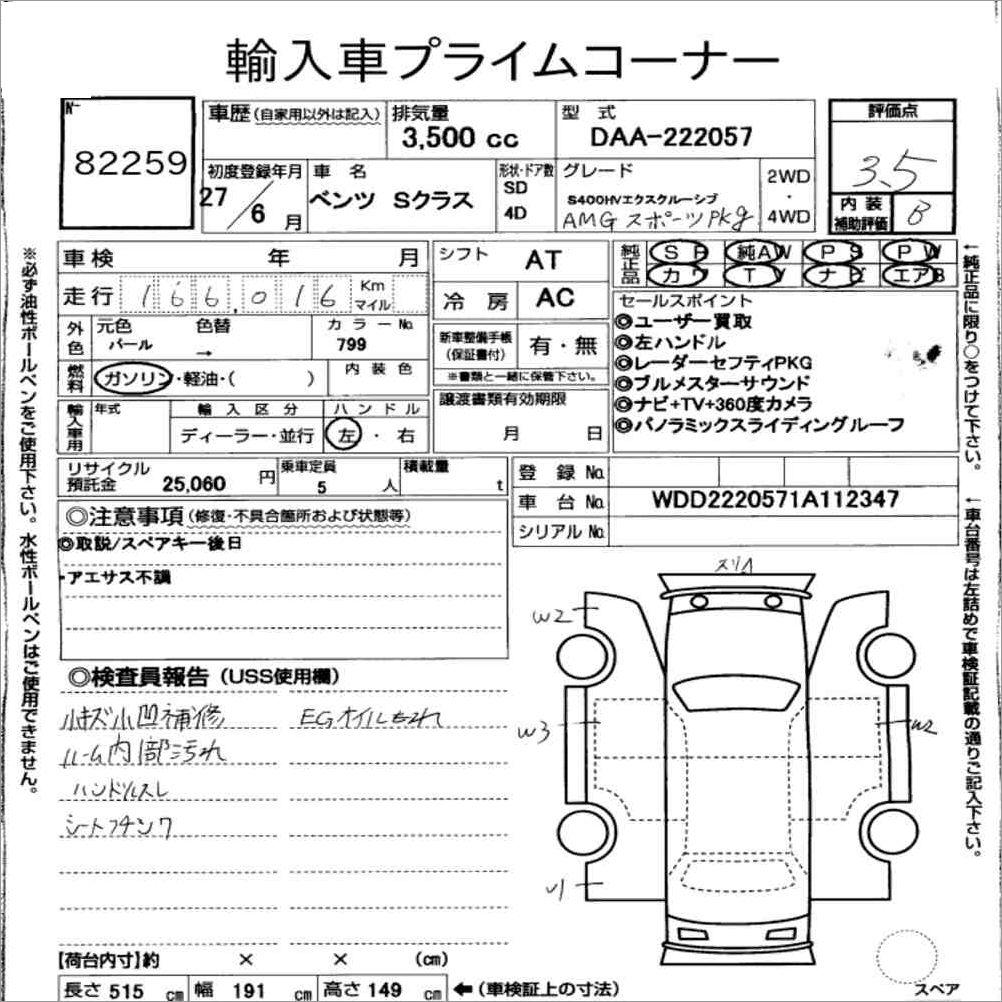 輸入車プライムコーナー
№ 82259
車歴 (自家用以外は記入) 排気量 3,500 cc 型式 DAA-222057
評価点 3.5
初度登録年月 27/6月 車名 ベンツ Sクラス 形状・ドア数 SD 4D グレード S400HVエクスクルーシブ AMG スポーツPkg 2WD・4WD
内装補助評価 B
車検 年 月 シフト AT
純正品 SR 純AW PS PW
カワ TV ナビ エアB
走行 166,016 Km マイル 冷房 AC
セールスポイント
◎ユーザー買取
◎左ハンドル
◎レーダーセフティPKG
◎ブルメスターサウンド
◎ナビ+TV+360度カメラ
◎パノラミックスライディングルーフ
外色 元色 パール 色替 → カラーNo. 799
新車整備手帳(保証書付) 有・無
※書類と一緒に保管下さい。
燃料 ガソリン・軽油・( ) 内装色
譲渡書類有効期限 月 日
輸入車用 年式 輸入区分 ハンドル
ディーラー・並行 左・右
リサイクル預託金 25,060 円 乗車定員 5 人 積載量 t
登録No.
車台No. WDD2220571A112347
シリアルNo.
◎注意事項 (修復・不具合箇所および状態等)
◎取説/スペアキー後日
・アエサス不調
◎検査員報告 (USS使用欄)
小キズ小凹補修 EGオイルもれ
ルーム内部汚れ
ハンドルスレ
シート
W2
W3
W2
W1
スペア
【荷台内寸】約 × × (cm)
長さ 515 cm 幅 191 cm 高さ 149 cm ←(車検証上の寸法)
※必ず油性ボールペンをご使用下さい。水性ボールペンはご使用できません。
←純正品に限り○をつけて下さい。
←車台番号は左詰めで車検証記載の通りご記入下さい。